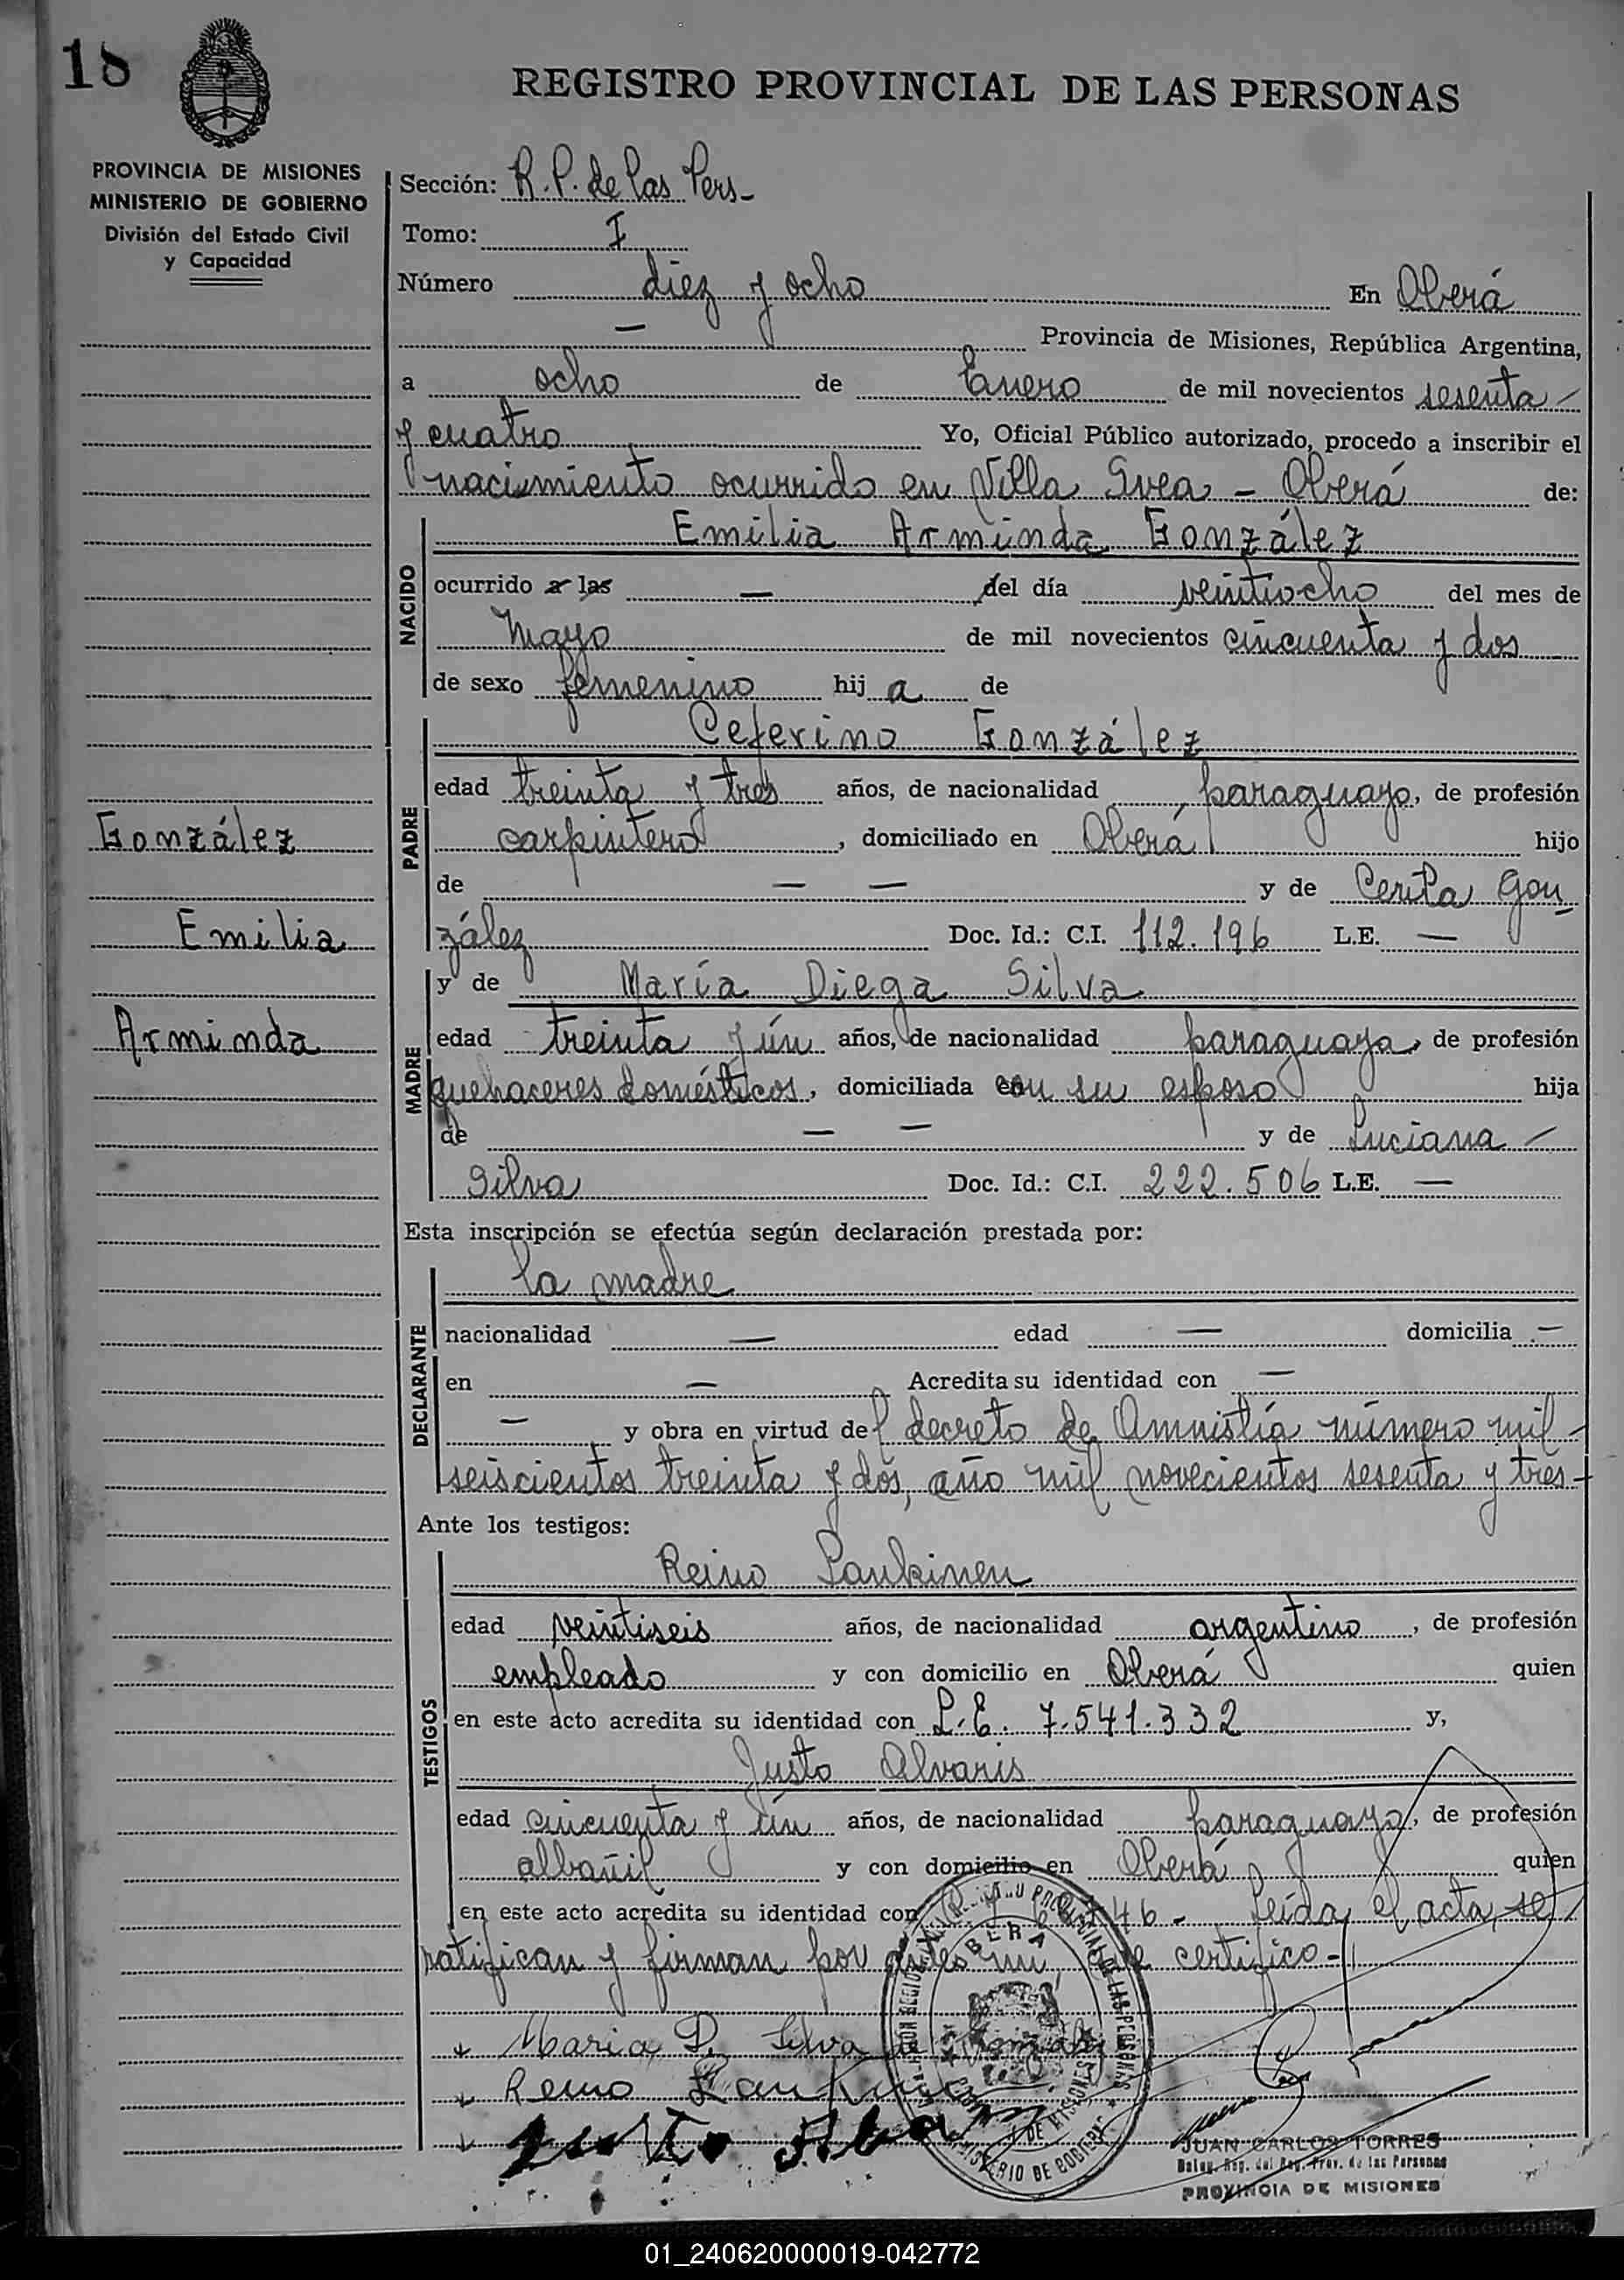 18
REGISTRO PROVINCIAL DE LAS PERSONAS
PROVINCIA DE MISIONES
MINISTERIO DE GOBIERNO
División del Estado Civil
y Capacidad
Sección: R.P. de las Pers-
Tomo: I
Número diez y ocho En Oberá
— Provincia de Misiones, República Argentina,
a ocho de Enero de mil novecientos sesenta
y cuatro Yo, Oficial Público autorizado, procedo a inscribir el
nacimiento ocurrido en Villa Svea - Oberá de:
NACIDO
Emilia Arminda González
ocurrido a las — del día veintiocho del mes de
Mayo de mil novecientos cincuenta y dos
de sexo femenino hij a de
PADRE
Ceferino González
edad treinta y tres años, de nacionalidad paraguayo, de profesión
carpintero, domiciliado en Oberá hijo
de — — y de Gon-
zález Doc. Id.: C.I. 112.196 L.E. —
González
Emilia
Arminda
y de María Diega Silva
MADRE
edad treinta y ún años, de nacionalidad paraguaya, de profesión
quehaceres domésticos, domiciliada con su esposo hija
de — — y de Luciana
Silva Doc. Id.: C.I. 222.506 L.E. —
Esta inscripción se efectúa según declaración prestada por:
DECLARANTE
la madre
nacionalidad — edad — domicilia —
en — Acredita su identidad con —
— y obra en virtud del decreto de Amnistía número mil
seiscientos treinta y dos, año mil novecientos sesenta y tres-
Ante los testigos:
TESTIGOS
Reino Laukinen
edad veintiseis años, de nacionalidad argentino, de profesión
empleado y con domicilio en Oberá quien
en este acto acredita su identidad con L.E. 7.541.332 y,
Justo Alvaris
edad cincuenta y ún años, de nacionalidad paraguayo, de profesión
albañil y con domicilio en Oberá quien
en este acto acredita su identidad con 46- Leída el acta, se
ratifican y firman por antes mi que certifico-
Maria D. Silva de
Reino
Justo
OBERA
MINISTERIO DE GOBIERNO
JUAN CARLOS TORRES
Deleg. Reg. del Reg. Prov. de las Personas
PROVINCIA DE MISIONES
01_240620000019-042772